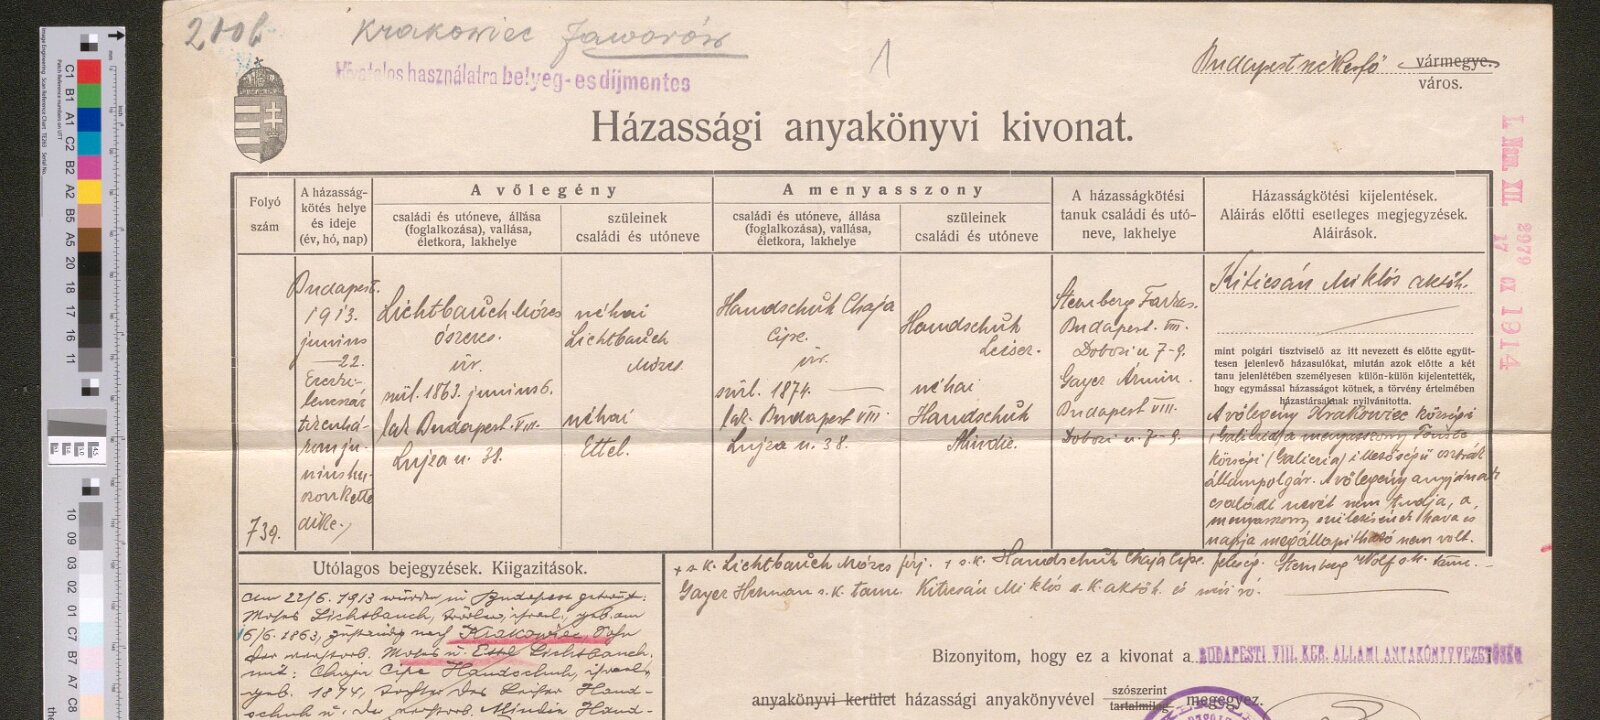 Krakowiec Jaworów
1
Hivatalos használatra bélyeg- és díjmentes
Budapest székesfő vármegye.
város.
Házassági anyakönyvi kivonat.
Folyó szám
A házasság-
kötés helye
és ideje
(év, hó, nap)
A vőlegény
családi és utóneve, állása
(foglalkozása), vallása,
életkora, lakhelye
szüleinek
családi és utóneve
A menyasszony
családi és utóneve, állása
(foglalkozása), vallása,
életkora, lakhelye
szüleinek
családi és utóneve
A házasságkötési
tanuk családi és utó-
neve, lakhelye
Házasságkötési kijelentések.
Aláírás előtti esetleges megjegyzések.
Aláírások.
739.
Budapest.
1913.
junius
22.
Ezerki-
lencszáz
tizenhá-
rom ju-
nius hu-
szonkette-
dike.
Lichtbauch Mózes
ószeres.
izr.
szül. 1863. junius 6.
lak Budapest. VIII.
Lujza u. 38.
néhai
Lichtbauch
Mózes
néhai
Ettel.
Handschuh Chaja
Cipe.
izr.
szül. 1874.
lak. Budapest VIII.
Lujza u. 38.
Handschuh
Leiser.
néhai
Handschuh
Mindie.
Sternberg Farkas.
Budapest. VIII.
Dobozi u 7-9.
Gayer Ármin.
Budapest VIII.
Dobozi u. 7-9.
Kiticsán Miklós aktöh.
mint polgári tisztviselő az itt nevezett és előtte együt-
tesen jelenlevő házasulókat, miután azok előtte a két
tanu jelenlétében személyesen külön-külön kijelentették,
hogy egymással házasságot kötnek, a törvény értelmében
házastársaknak nyilvánitotta.
A vőlegény Krakowiec községi
(Galicia) a menyasszony
községi (Galicia) illetőségű osztrák
állampolgár. A vőlegény anyjának
családi nevét nem tudja, a
menyasszony születésének hava és
napja megállapitható nem volt.
I. 2979
17 1914
Utólagos bejegyzések. Kiigazitások.
Am 22/6. 1913 wurden in Budapest getraut:
Moses Lichtbauch, Trödler, israel., geb. am
6/6. 1863, zuständig nach Krakowiec, Sohn
der verstorb. Moses u. Ettel Lichtbauch,
mit: Chaja Cipe Handschuh, israel.,
geb. 1874, Tochter des Leiser Hand-
schuh u. der verstorb. Mindie Hand-
+ s.k. Lichtbauch Mózes férj. + s.k. Handschuh Chaja Cipe feleség. Sternberg Wolf s.k. tanu.
Gayer Herman s.k. tanu. Kiticsán Miklós s.k. aktöh.
Bizonyitom, hogy ez a kivonat a BUDAPESTI VIII. KER. ÁLLAMI ANYAKÖNYVVEZETŐSÉG
anyakönyvi kerület házassági anyakönyvével szószerint
tartalmilag megegyez.